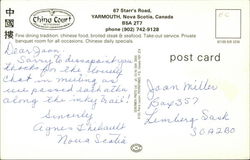 中國樓
China Court
67 Starr's Road,
YARMOUTH, Nova Scotia, Canada
B5A 2T7
phone (902) 742-9128
Fine dining tradition, chinese food, broiled steak & seafood. Take-out service. Private
banquet room for all occasions. Chinese daily specials.
post card
Dear Joan.
Sorry to disappoint you
thanks for the lovely
chat
we passed
along the
Sincerely
Agnes Thibault
Nova Scotia
Joan Miller
Box 353
Lumberg. Sask
S0A 2B0